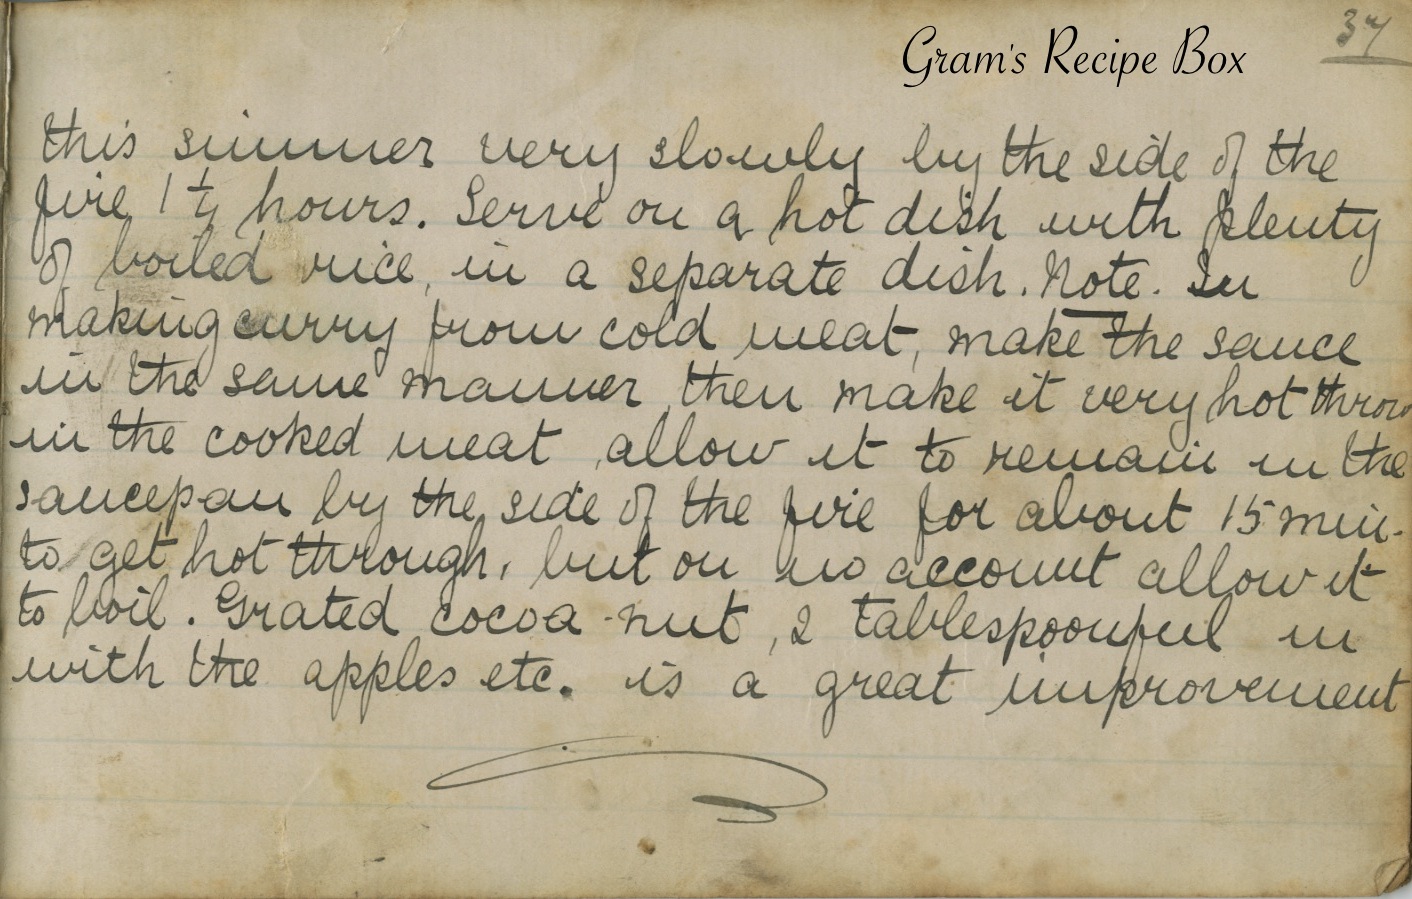 Gram's Recipe Box
37
this simmer very slowly by the side of the
fire 1 1/4 hours. Serve on a hot dish with plenty
of boiled rice, in a separate dish. Note. In
making curry from cold meat, make the sauce
in the same manner, then make it very hot throw
in the cooked meat, allow it to remain in the
saucepan by the side of the fire for about 15 min.
to get hot through, but on no account allow it
to boil. Grated cocoa-nut, 2 tablespoonful in
with the apples etc. is a great improvement